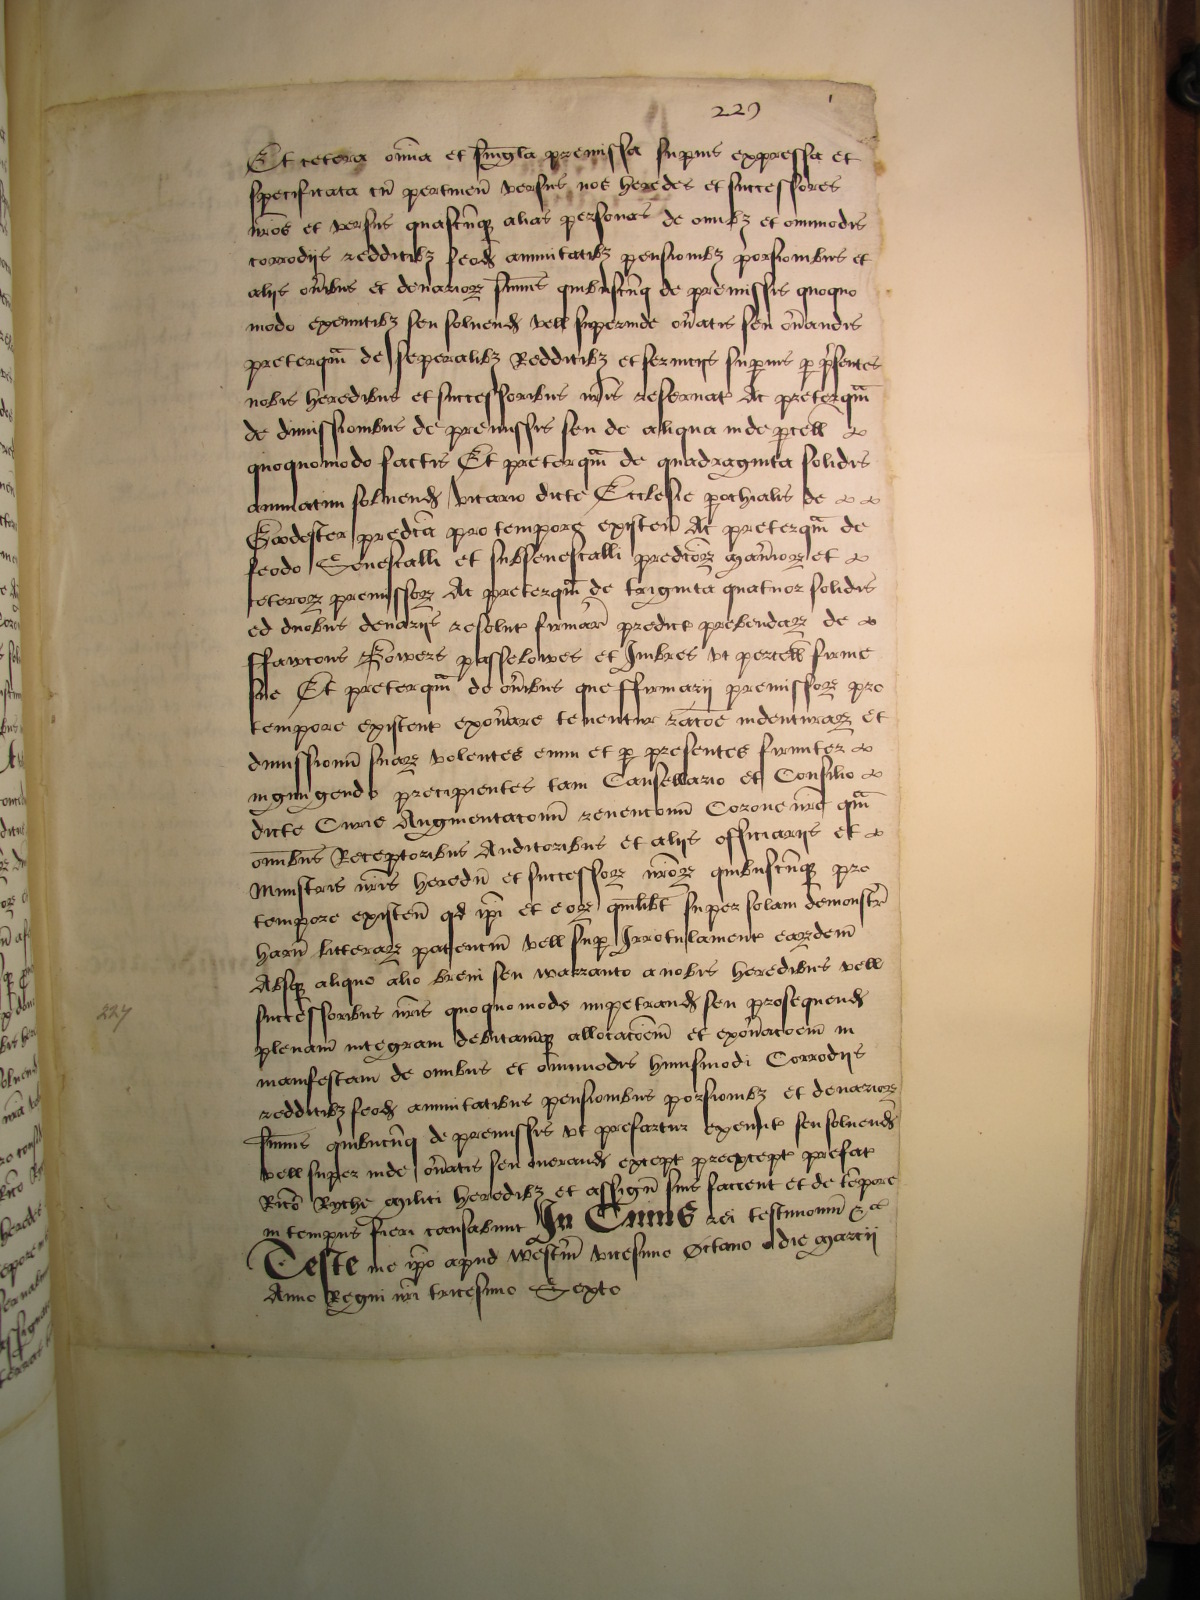 229
Et cetera om̄ia et singl̄a premissa supius expressa et
specificata cū pertineñ versus nos heredes et successores
nr̄os et versus quascūqꝫ alias personas de omibꝫ et omimodis
corrodijs redditibꝫ feod annuitatibꝫ pensionibꝫ porsionibus et
alijs on̄ibus et denarioꝝ sum̄is quibuscūqꝫ de premissis quoquo
modo exeuntibꝫ seu soluend vell superinde on̄atis seu on̄andis
preterqm̄ de seperalibꝫ Redditibꝫ et seruicijs supius p p̄sentes
nobis heredibus et successoribus nr̄is reseruat Ac preterqm̄
de dimissionibus de premissis seu de aliqua inde pcell
quoquomodo factis Et preterqm̄ de quadraginta solidis
annuatim soluend vicario dicte Ecclesie pochialis de
Godester predict̄a pro tempore existeñ Ac preterqm̄ de
feodo Senescalli et subsenescalli predict̄oꝝ Man̄ioꝝ et
ceteroꝝ premissoꝝ Ac preterqm̄ de triginta quatuor solidis
ed duobus denarijs resolut firmar̄ predict prebendaꝝ de
ffawcons Bowers passelowes et Imbres vt percell firme
sue Et preterqm̄ de on̄ibus que ffirmarij premissoꝝ pro
tempore existent exon̄are tenentur rac̄oe indenturaꝝ et
dimissionū suaꝝ volentes enim et p presentes firmiter
iniungendo precipientes tam Cansellario et Consilio
dicte Curie Augmentac̄onū reuenc̄onū Corone nr̄e qm̄
om̄ibus Receptoribus Auditoribus et alijs officiarijs et
Ministris nr̄is heredū et successoꝝ nr̄oꝝ quibuscūqꝫ pro
tempore existeñ qd ip̄i et eoꝝ quil̄ibt super solam demonstr̄
harū litteraꝝ patenciū vell sup Irrotulament eaꝝdem
Absqꝫ aliquo alio breui seu warranto a nobis heredibus vell
successoribus nr̄is quoquomodo impetrand seu prosequend
plenam integram debitamqꝫ allocac̄oem et exon̄ac̄oem in
manifestam de omibus et om̄imodis huiusmodi Corrodijs
redditibꝫ feod annuitatibus pensionibus porsionibꝫ et denarioꝝ
sum̄is quibucūqꝫ de premissis vt prefartur exeunt seu soluend
vell super inde on̄atis seu onerand except preexcept prefat
Ric̄o Ryche Militi heredibꝫ et assigñ suis facient et de tēpore
in tempus fieri causabunt In Cuius rei testimoniū &c
Teste me ip̄o apud Westm̄ vicesimo Octauo die Marcij
Anno Regni nr̄i tricesimo Sexto
227